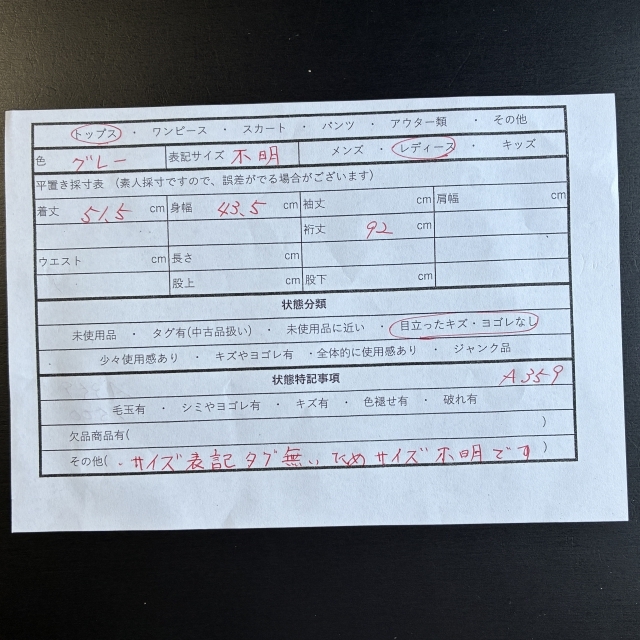 トップス ・ ワンピース ・ スカート ・ パンツ ・ アウター類 ・ その他
色 グレー 表記サイズ 不明 メンズ ・ レディース ・ キッズ
平置き採寸表 （素人採寸ですので、誤差がでる場合がございます）
着丈 51.5 cm 身幅 43.5 cm 袖丈 cm 肩幅 cm
裄丈 92 cm
ウエスト cm 長さ cm
股上 cm 股下 cm
状態分類
未使用品 ・ タグ有(中古品扱い) ・ 未使用品に近い ・ 目立ったキズ・ヨゴレなし
少々使用感あり ・ キズやヨゴレ有 ・全体的に使用感あり ・ ジャンク品
状態特記事項 A359
毛玉有 ・ シミやヨゴレ有 ・ キズ有 ・ 色褪せ有 ・ 破れ有
欠品商品有( )
その他( ・サイズ表記タグ無いためサイズ不明です )